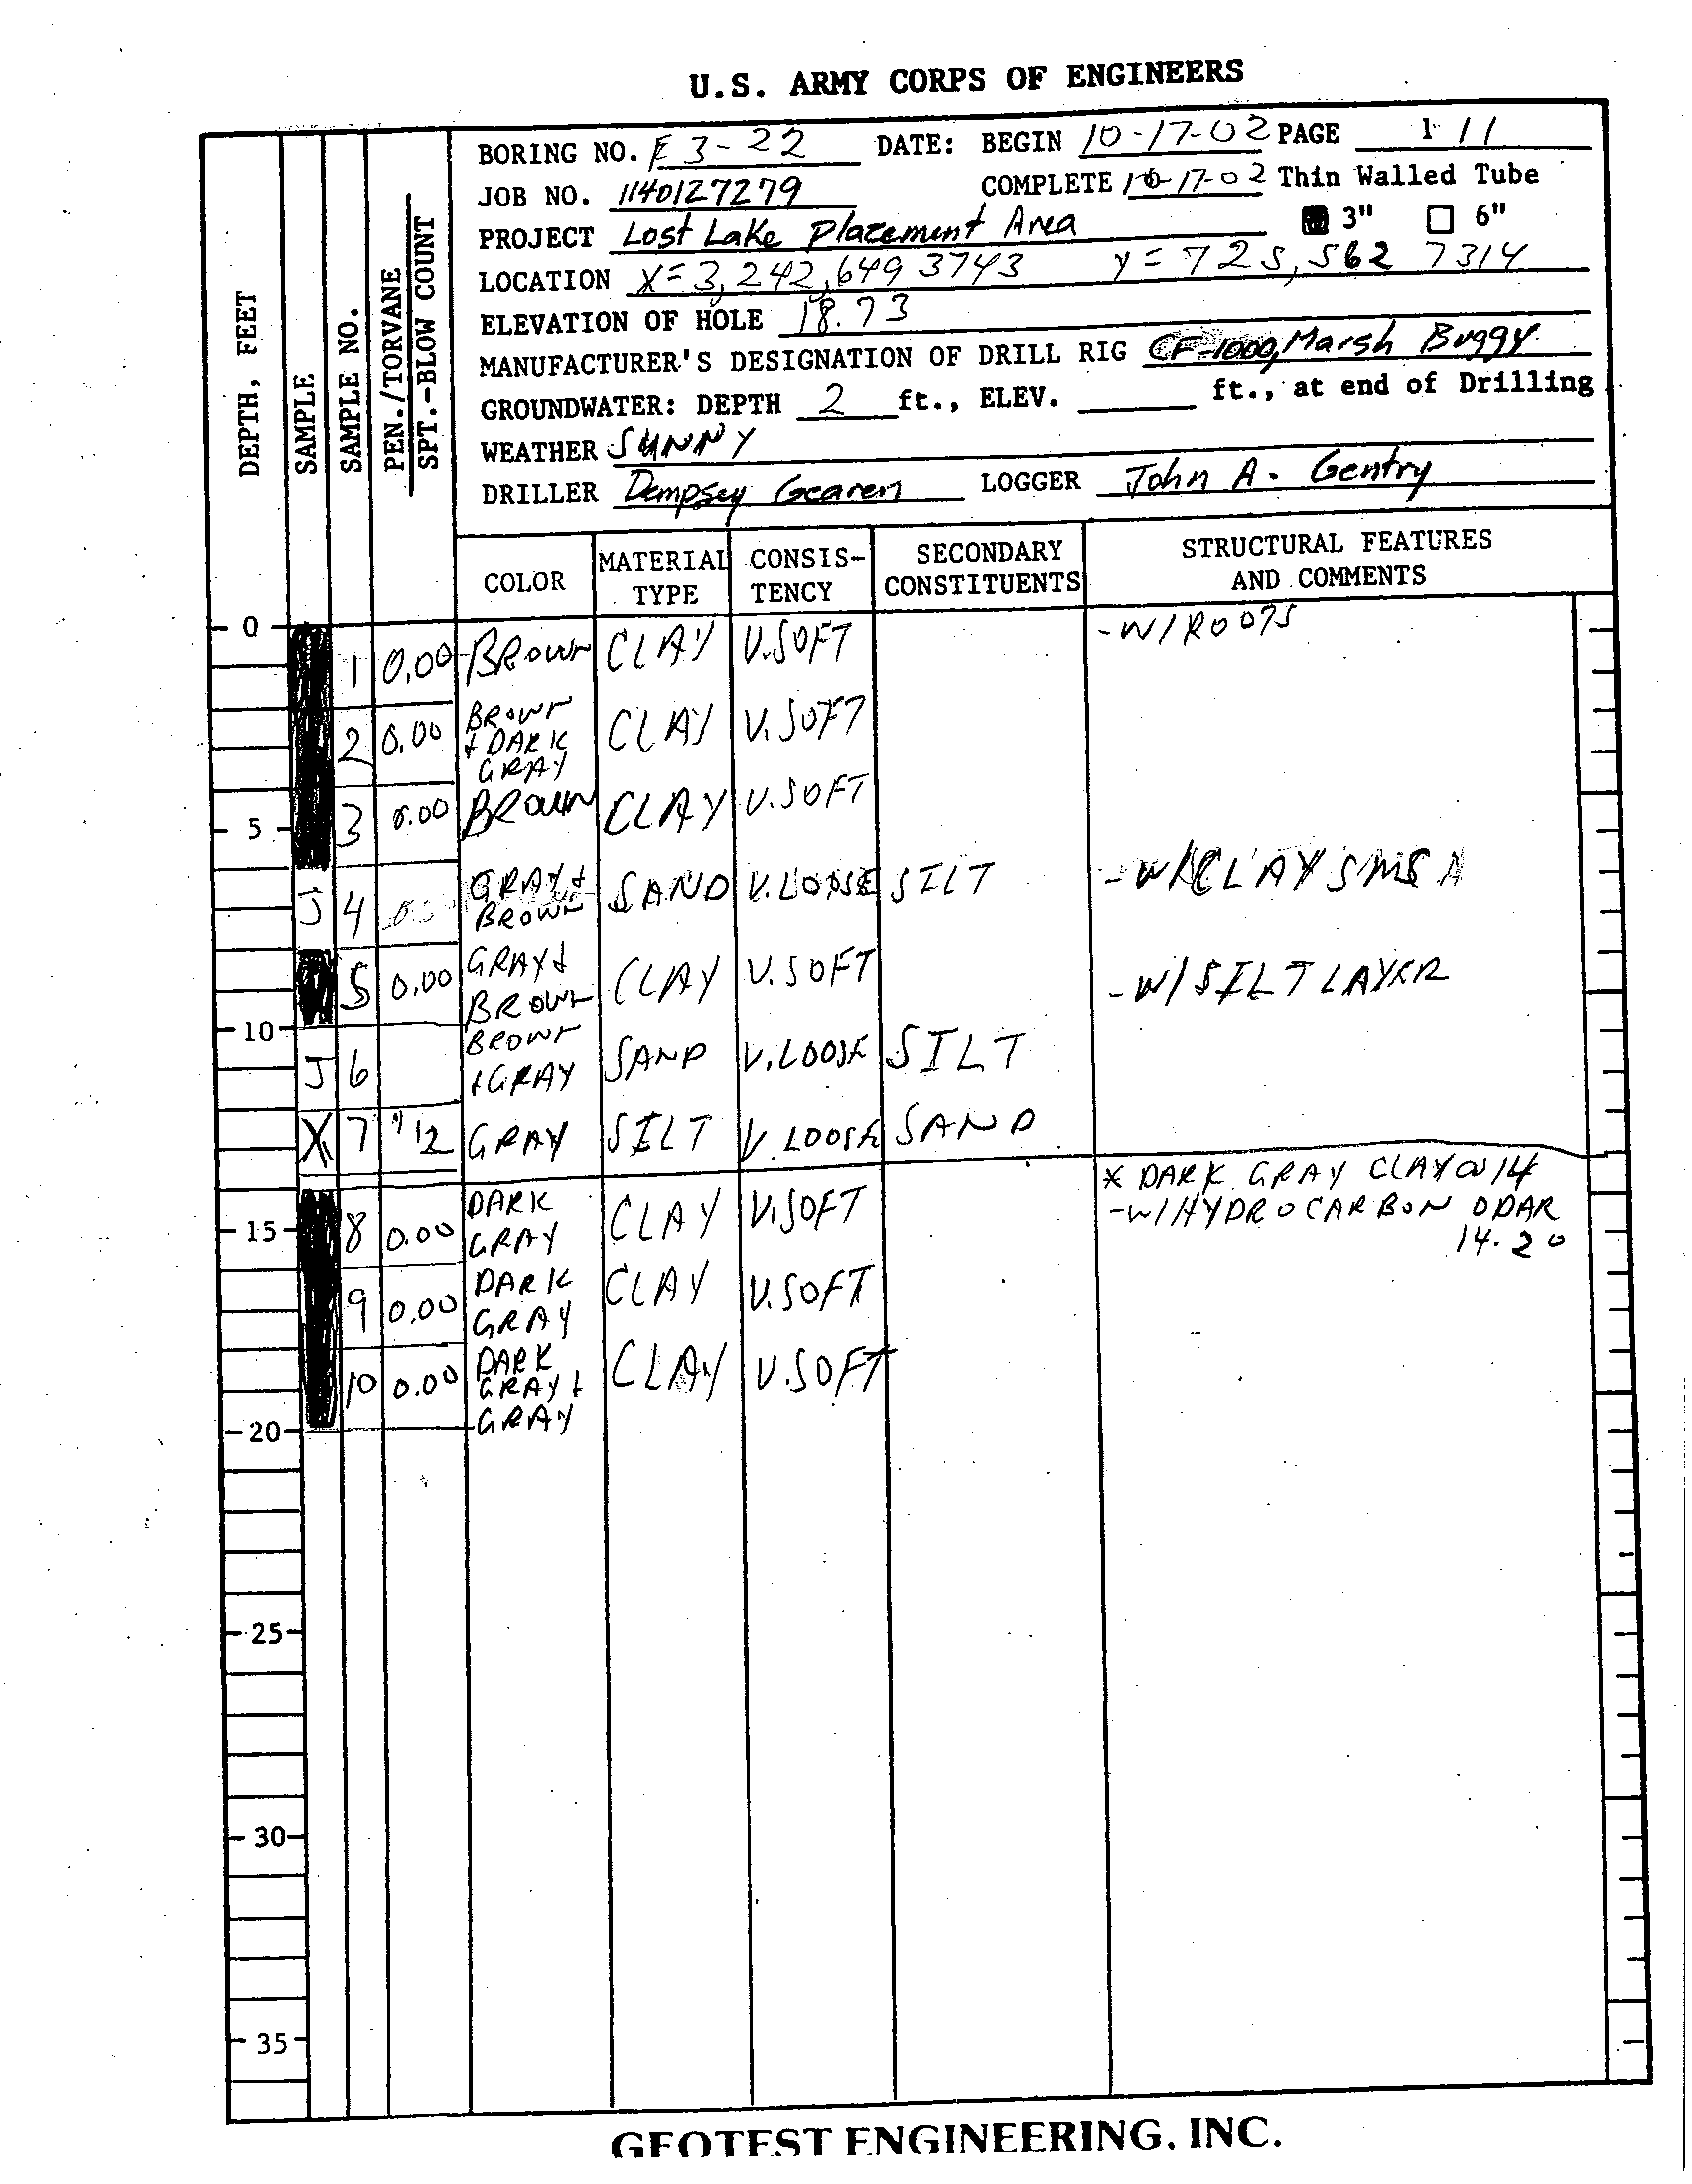 U.S. ARMY CORPS OF ENGINEERS
BORING NO. E 3-22 DATE: BEGIN 10-17-02 PAGE 1 / 1
JOB NO. 1140127279 COMPLETE 10-17-02 Thin Walled Tube
PROJECT Lost Lake Placement Area 3" 6"
LOCATION X=3,242,649 3743 Y=725,562 7314
ELEVATION OF HOLE 18.73
MANUFACTURER'S DESIGNATION OF DRILL RIG CF-1000, Marsh Buggy
GROUNDWATER: DEPTH 2 ft., ELEV. ft., at end of Drilling
WEATHER SUNNY
DRILLER Dempsey Gearen LOGGER John A. Gentry
DEPTH, FEET
SAMPLE
SAMPLE NO.
PEN./TORVANE
SPT.-BLOW COUNT
COLOR
MATERIAL TYPE
CONSIS-TENCY
SECONDARY CONSTITUENTS
STRUCTURAL FEATURES AND COMMENTS
0
1 0.00 BROWN CLAY V.SOFT -W/ROOTS
2 0.00 BROWN & DARK GRAY CLAY V.SOFT
5
3 0.00 BROWN CLAY V.SOFT
J 4 GRAY & BROWN SAND V.LOOSE SILT
5 0.00 GRAY & BROWN CLAY V.SOFT -W/SILT LAYER
10
J 6 BROWN & GRAY SAND V.LOOSE SILT
X 7 GRAY SILT V.LOOSE SAND
* DARK GRAY CLAY @ 14
-W/HYDROCARBON ODAR
14-20
15
8 0.00 DARK GRAY CLAY V.SOFT
9 0.00 DARK GRAY CLAY V.SOFT
10 0.00 DARK GRAY & GRAY CLAY V.SOFT
20
25
30
35
GEOTEST ENGINEERING, INC.